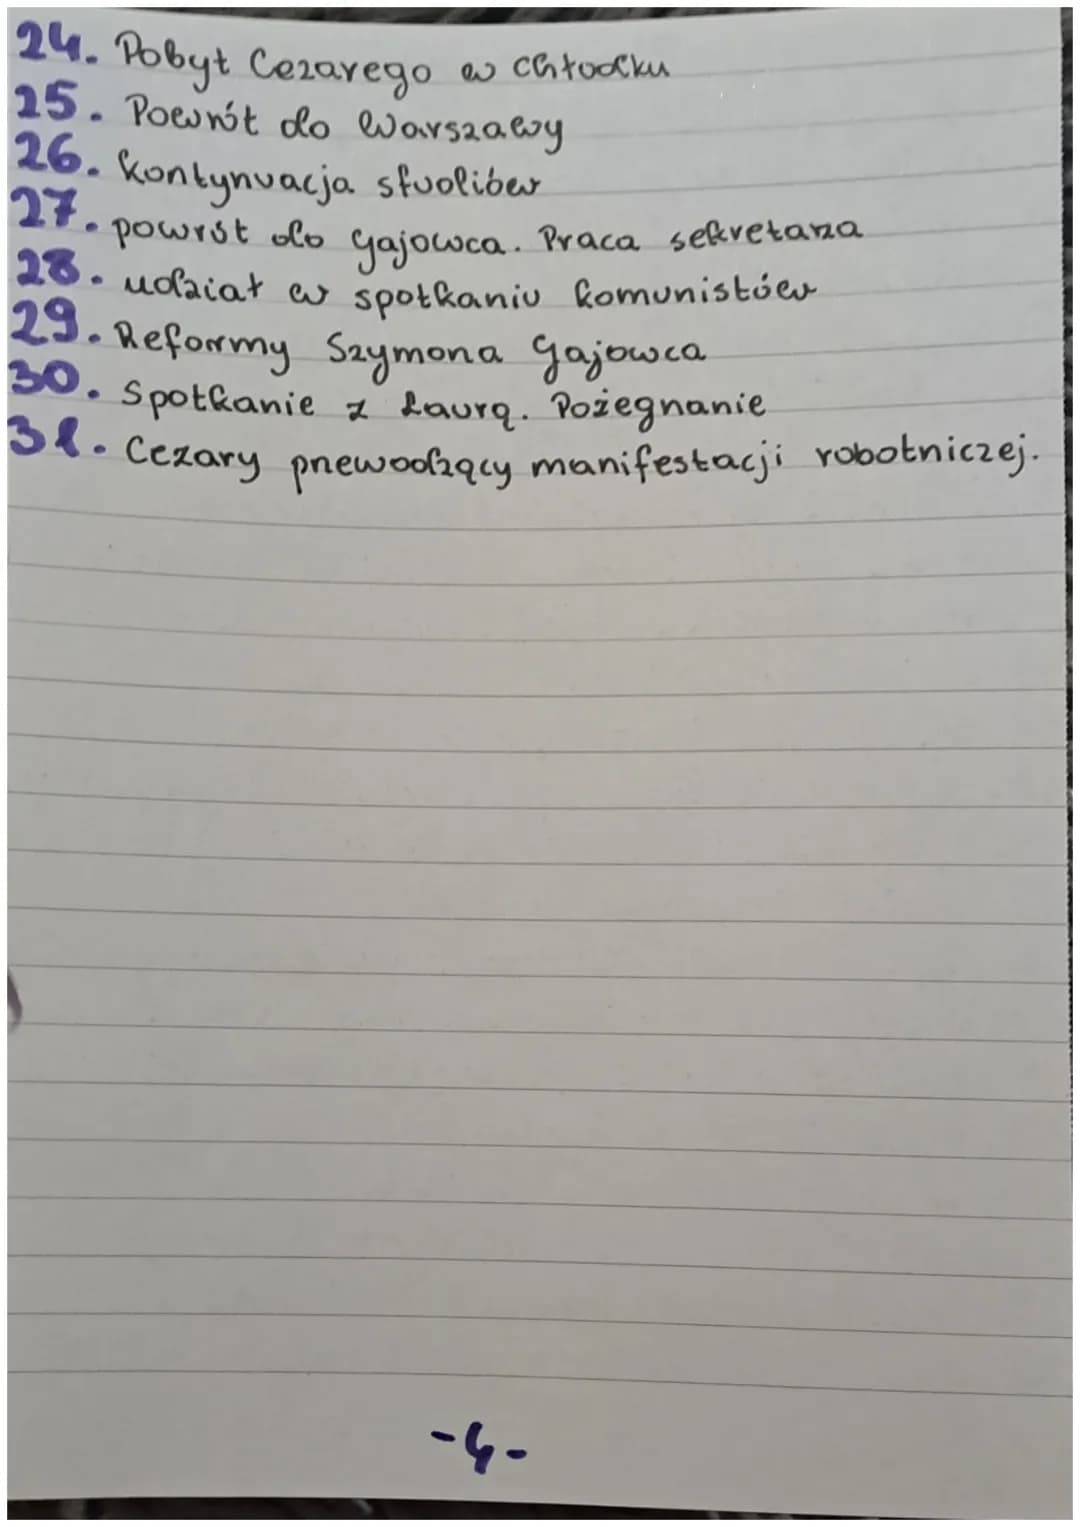 24. Pobyt Cezarego w Chłodku
25. Powrót do Warszawy
26. kontynuacja studiów
27. powrót do Gajowca. Praca sekretarza
28. udział w spotkaniu komunistów
29. Reformy Szymona Gajowca
30. Spotkanie z Laurą. Pożegnanie
31. Cezary przewodzący manifestacji robotniczej.
-4-